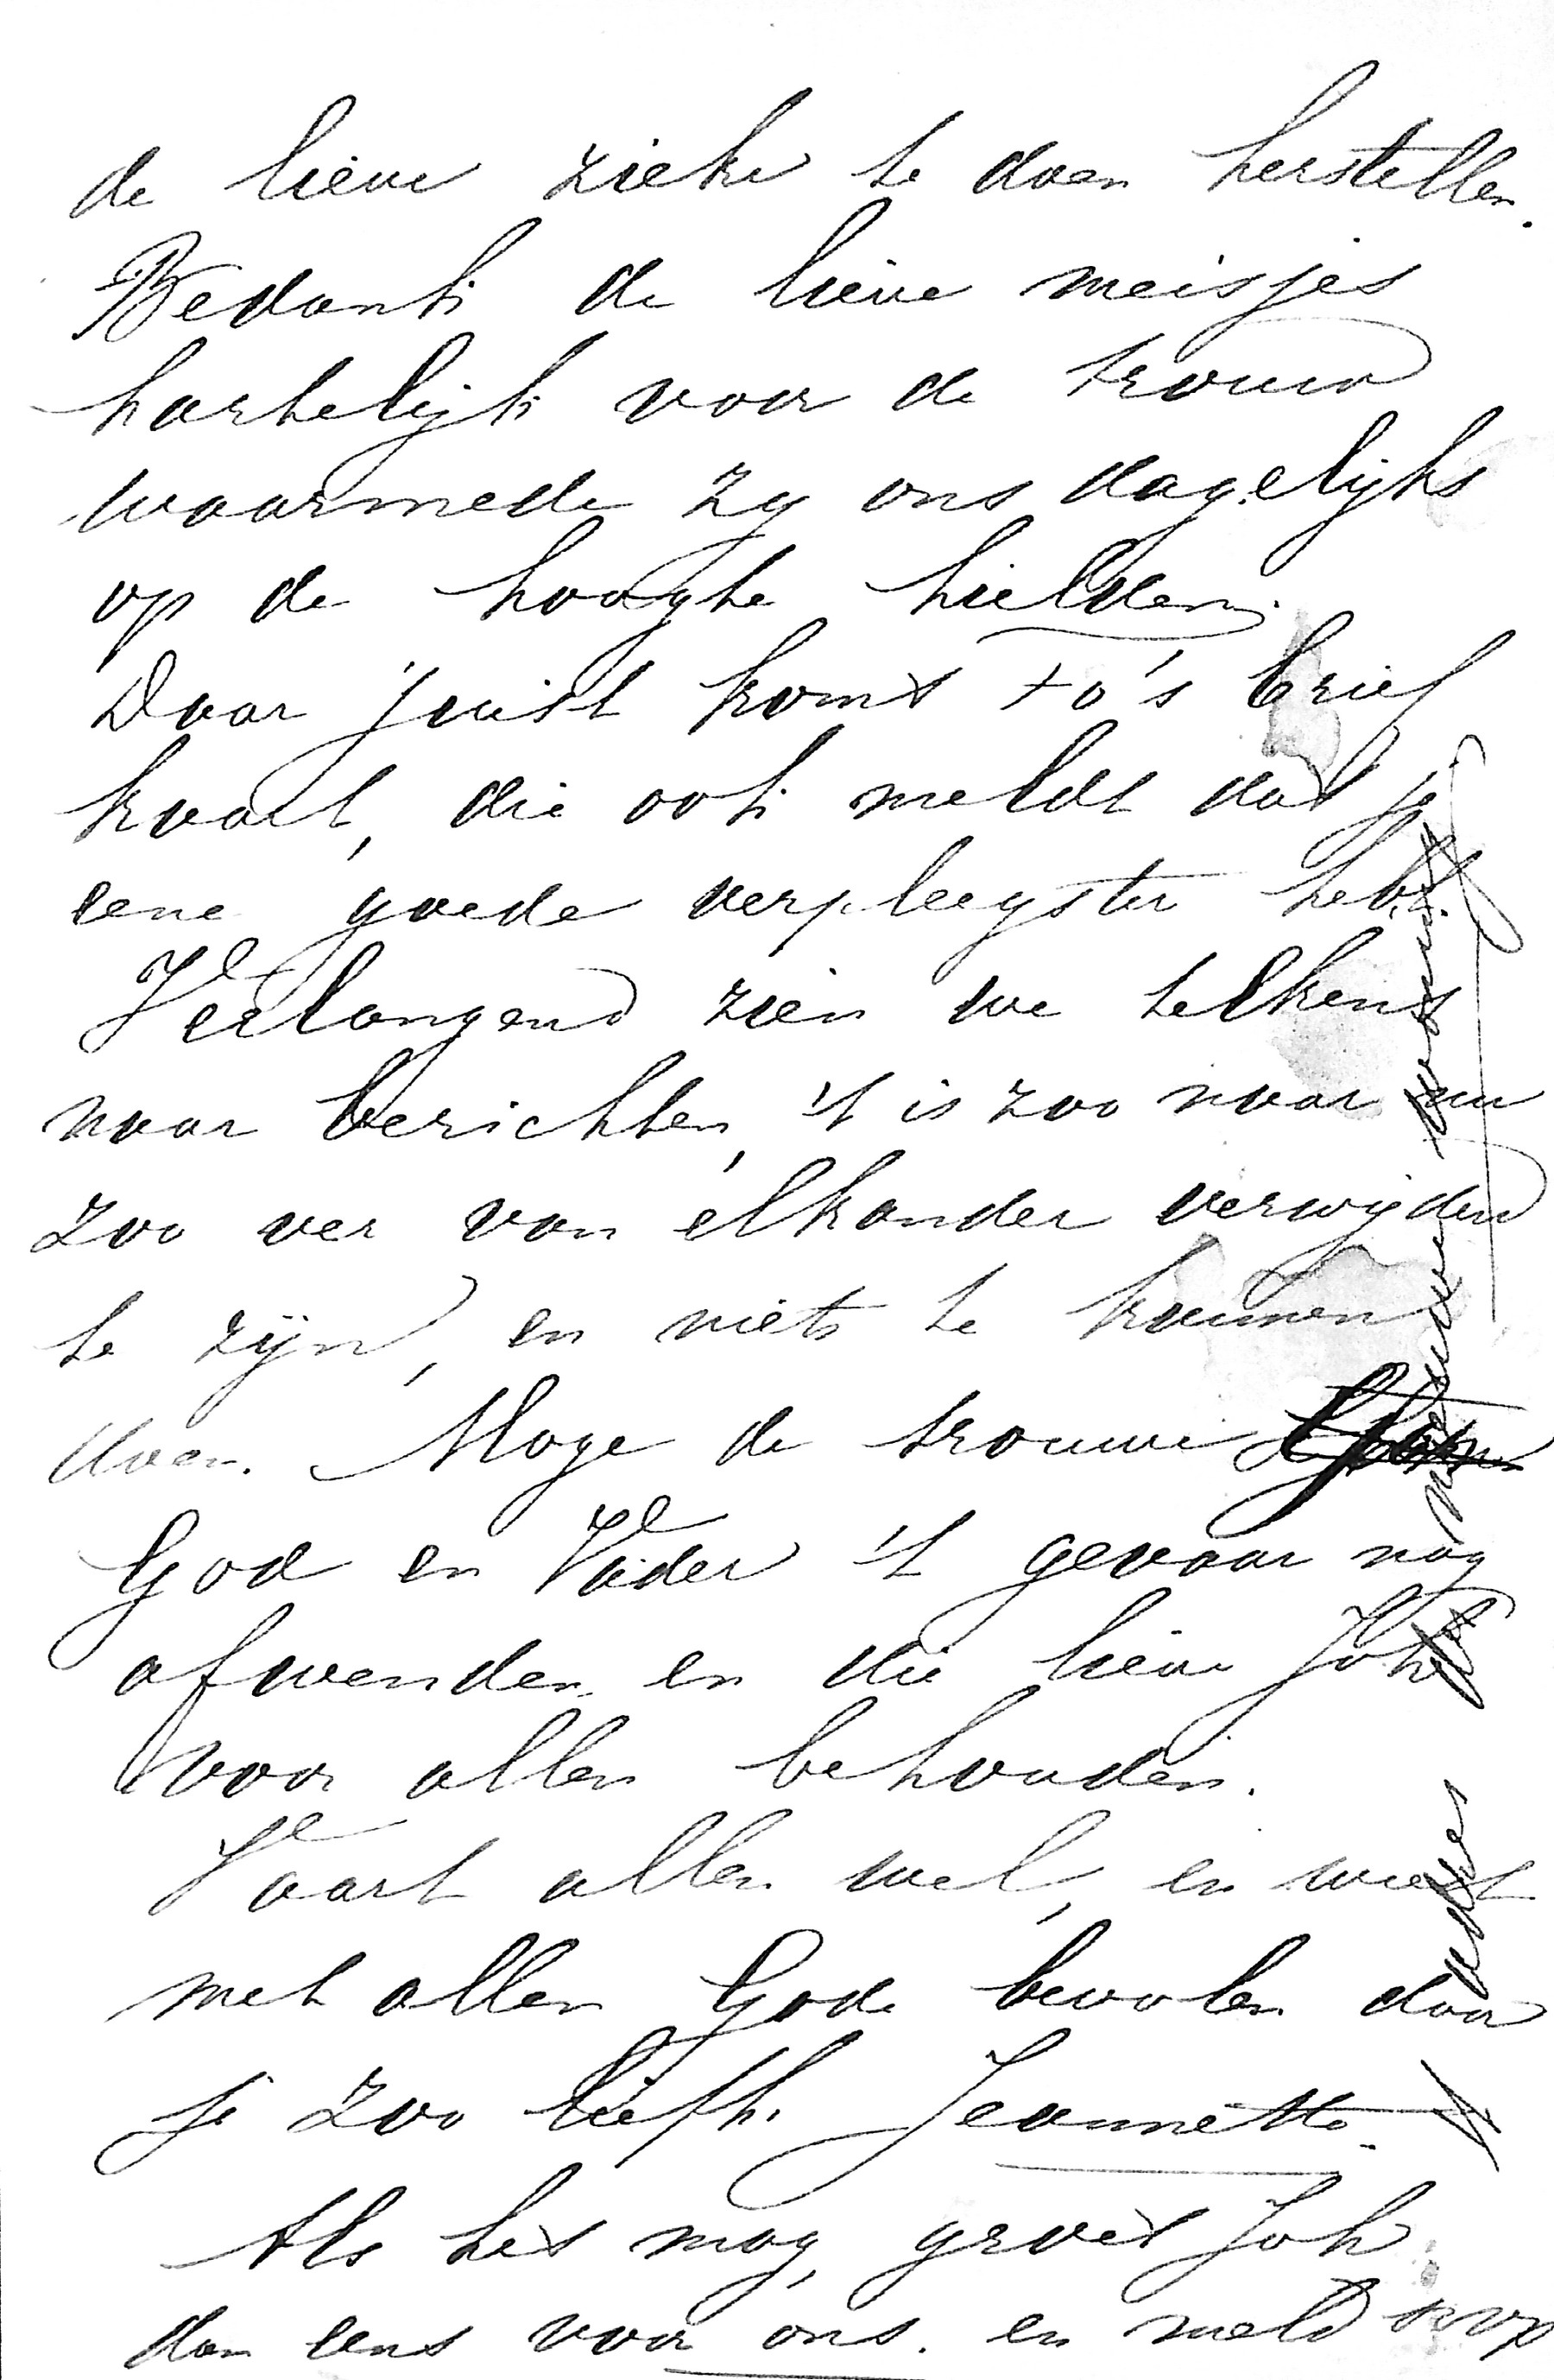 de lieve zieke te doen herstellen.
Bedank de lieve meisjes
hartelijk voor de trouw
waarmede zy ons dagelijks
op de hoogte hielden.
Daar juist komt to's brief
kaart, die ook meldt dat je
eene goede verpleegster hebt.
Verlangend zien we telkens
naar berichten, 't is zoo naar nu
zoo ver van elkander verwijderd
te zijn, en niets te kunnen
doen. Moge de trouwe
God en Vader 't gevaar nog
afwenden en die lieve Joh
voor allen behouden.
Vaart allen wel, en weest
met allen Gode bevolen door
je zoo liefh. Jeannette.
Als het mag, groet Joh
dan eens voor ons. en meld
adres
nieuwe woning